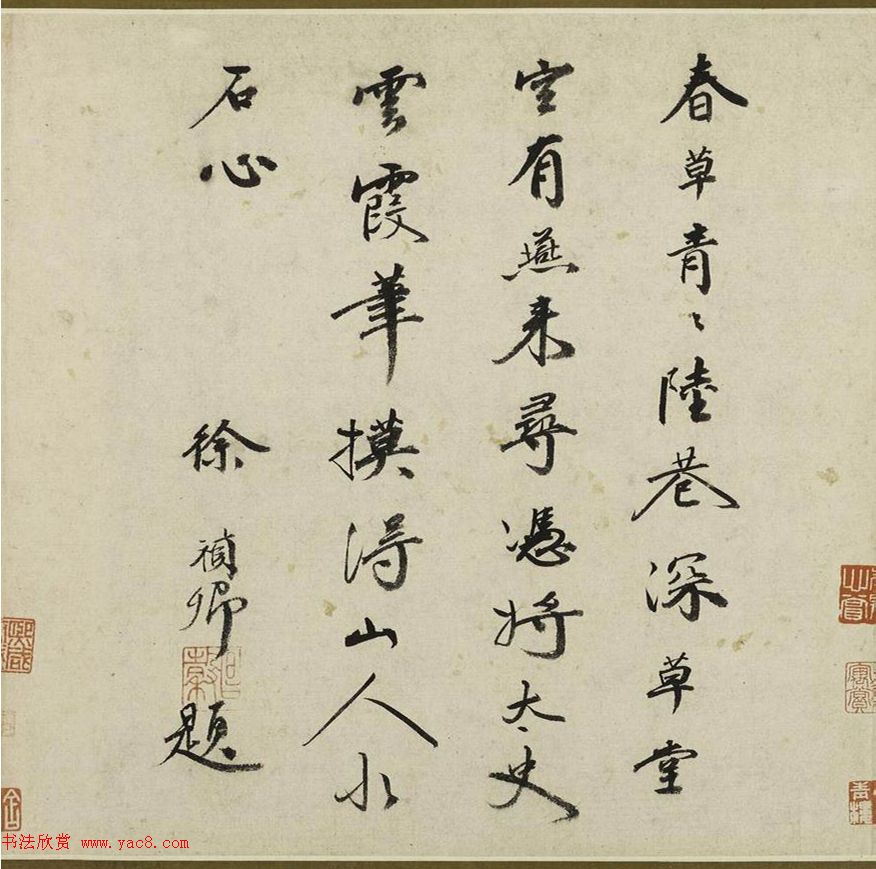 春草青〻陸巷深草堂
空有燕来尋憑将太史
雲霞筆摸得山人水
石心
徐禎卿題
书法欣赏 www.yac8.com